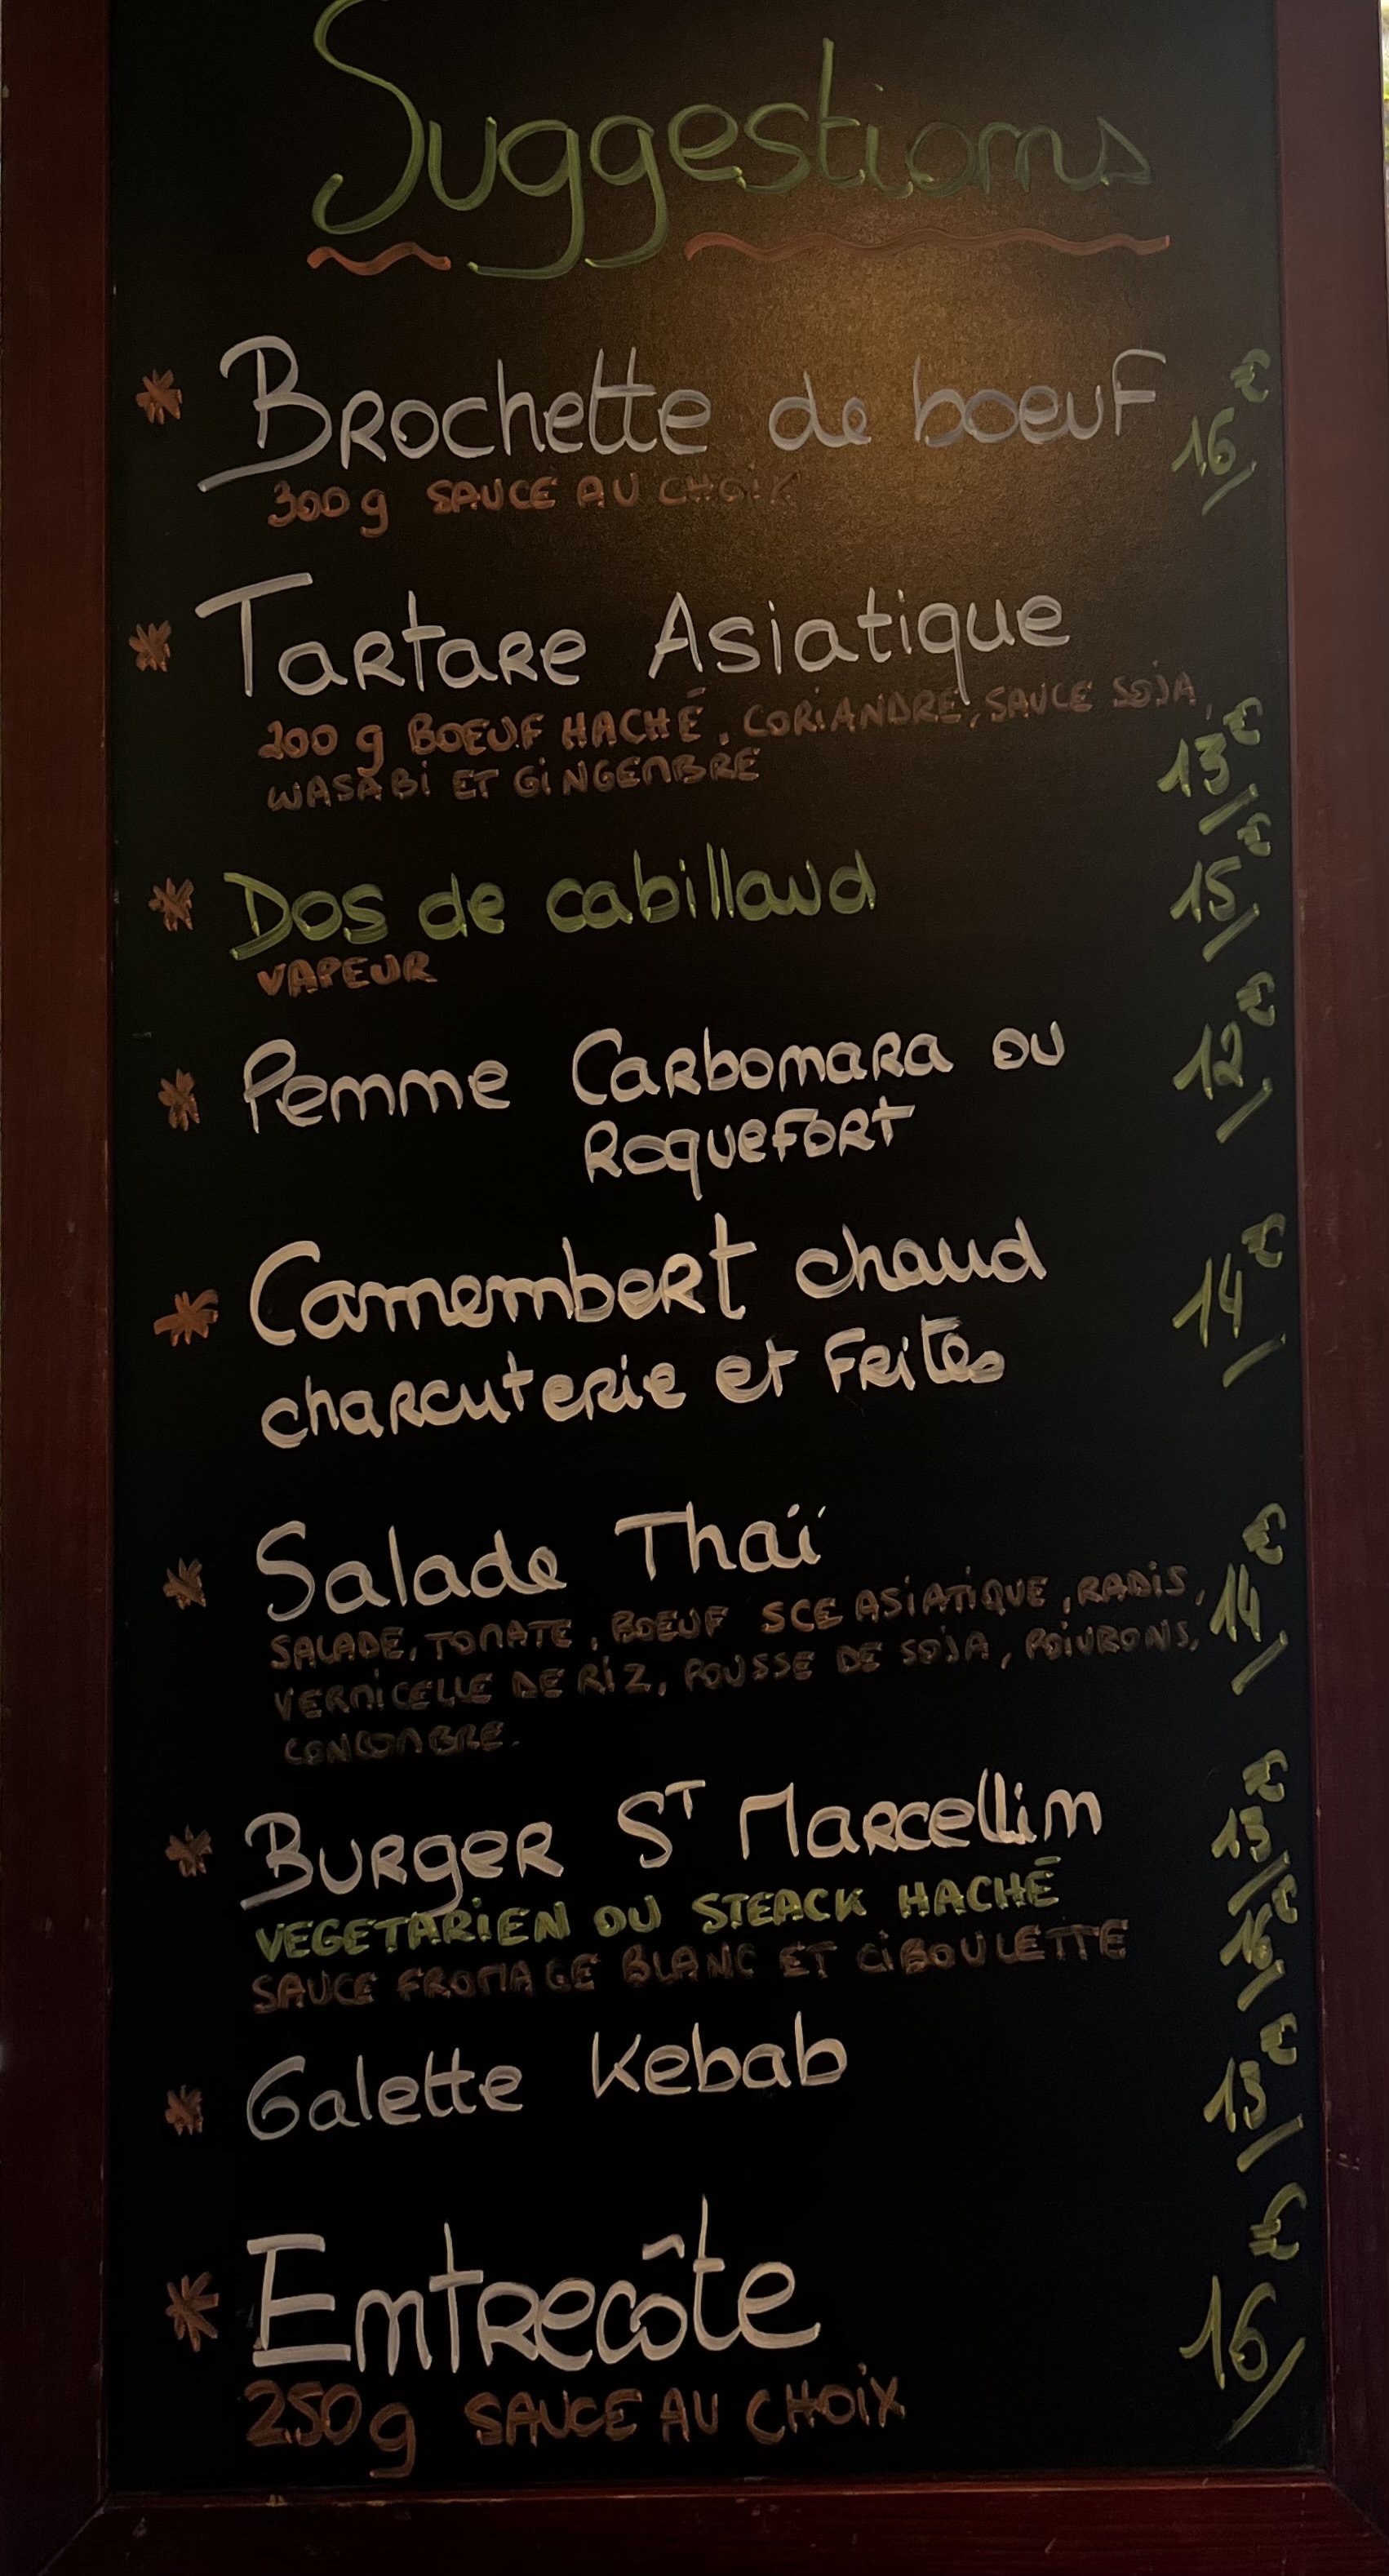 Suggestions
* Brochette de boeuf 16€
300g SAUCE AU CHOIX
* Tartare Asiatique
200 g BOEUF HACHÉ, CORIANDRE, SAUCE SOJA,
WASABI ET GINGEMBRE 13€
* Dos de cabillaud 15€
VAPEUR
* Penne Carbonara ou 12€
Roquefort
* Camembert chaud 14€
charcuterie et Frites
* Salade Thaï
SALADE, TOMATE, BOEUF SCE ASIATIQUE, RADIS, 14€
VERMICELLE DE RIZ, POUSSE DE SOJA, POIVRONS,
CONCOMBRE.
* Burger St Marcellin 15€
VEGETARIEN OU STEACK HACHÉ 16€
SAUCE FROMAGE BLANC ET CIBOULETTE
* Galette Kebab 13€
* Entrecôte 16€
250g SAUCE AU CHOIX